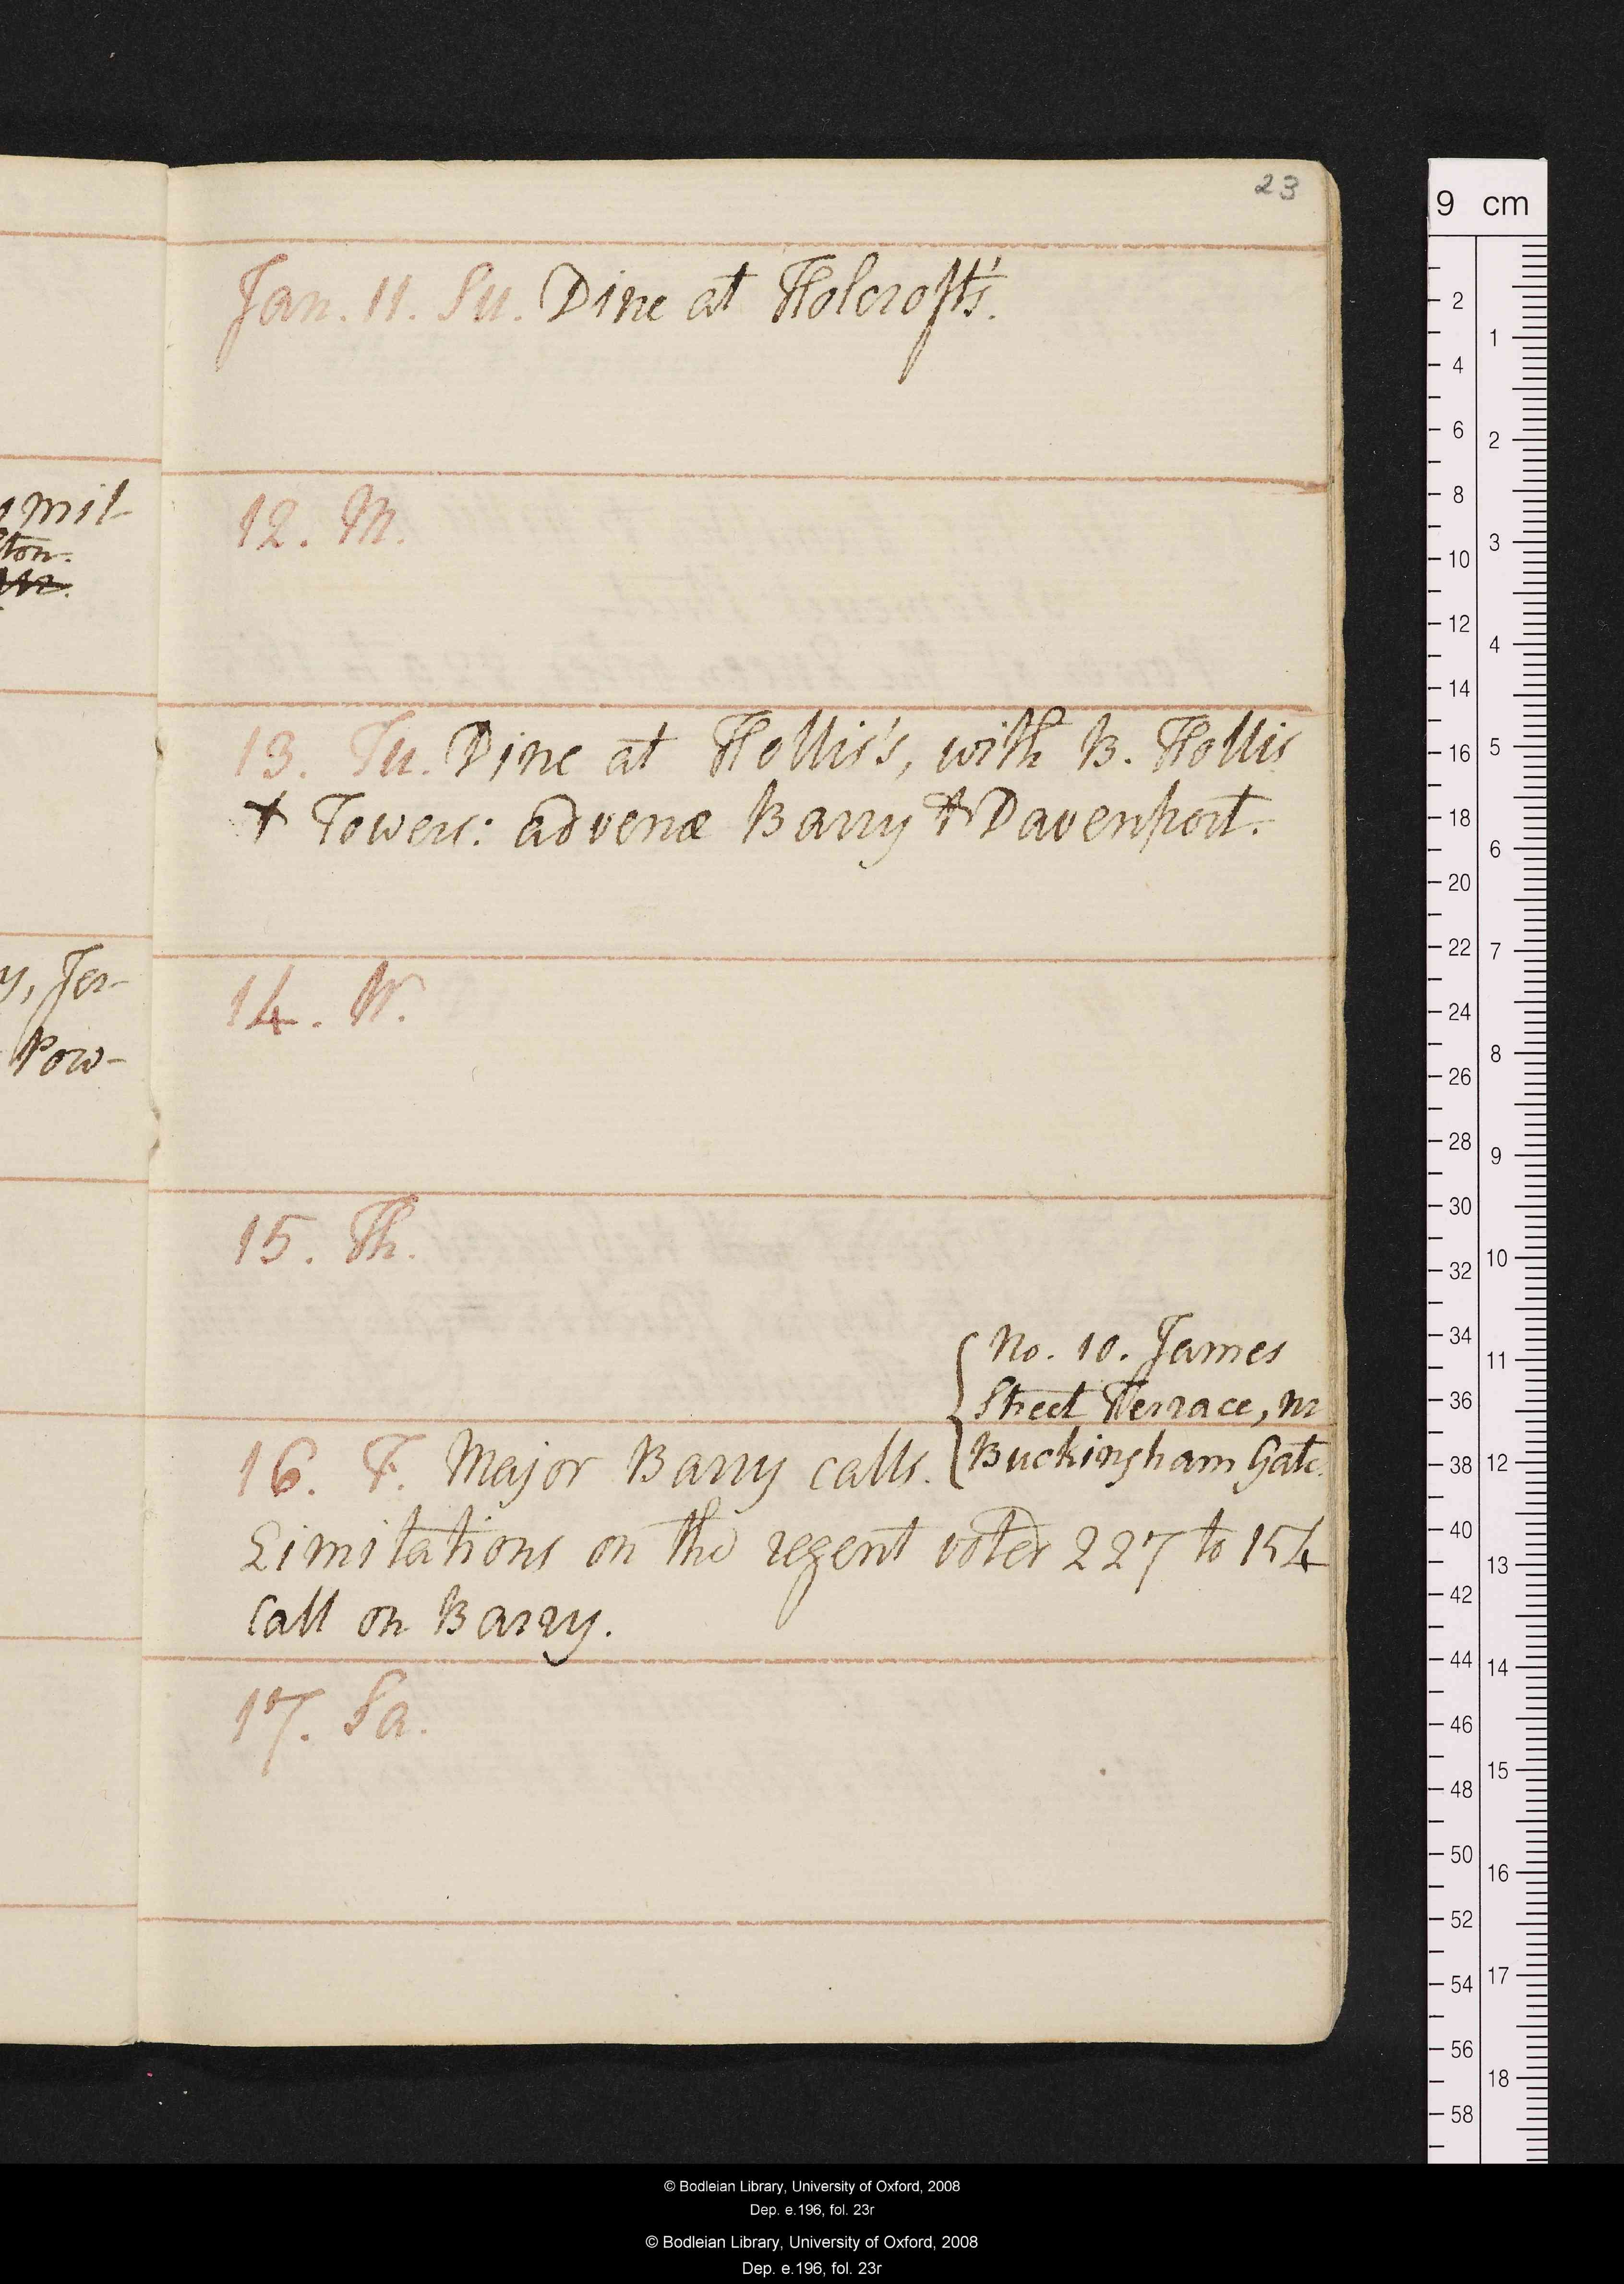 23
Jan. 11. Su. Dine at Holcroft's.
12. M.
13. Tu. Dine at Hollis's, with B. Hollis
& Towers: advenæ Barry & Davenport.
14. W.
15. Th.
{No. 10. James
Street Terrace, nr
Buckingham Gate.
16. F. Major Barry calls.
Limitations on the regent voted 227 to 154
Call on Barry.
17. Sa.
mil-
ton.
y, Jer-
Pow-
9 cm
2
4
6
8
10
12
14
16
18
20
22
24
26
28
30
32
34
36
38
40
42
44
46
48
50
52
54
56
58
1
2
3
4
5
6
7
8
9
10
11
12
13
14
15
16
17
18
© Bodleian Library, University of Oxford, 2008
Dep. e.196, fol. 23r
© Bodleian Library, University of Oxford, 2008
Dep. e.196, fol. 23r